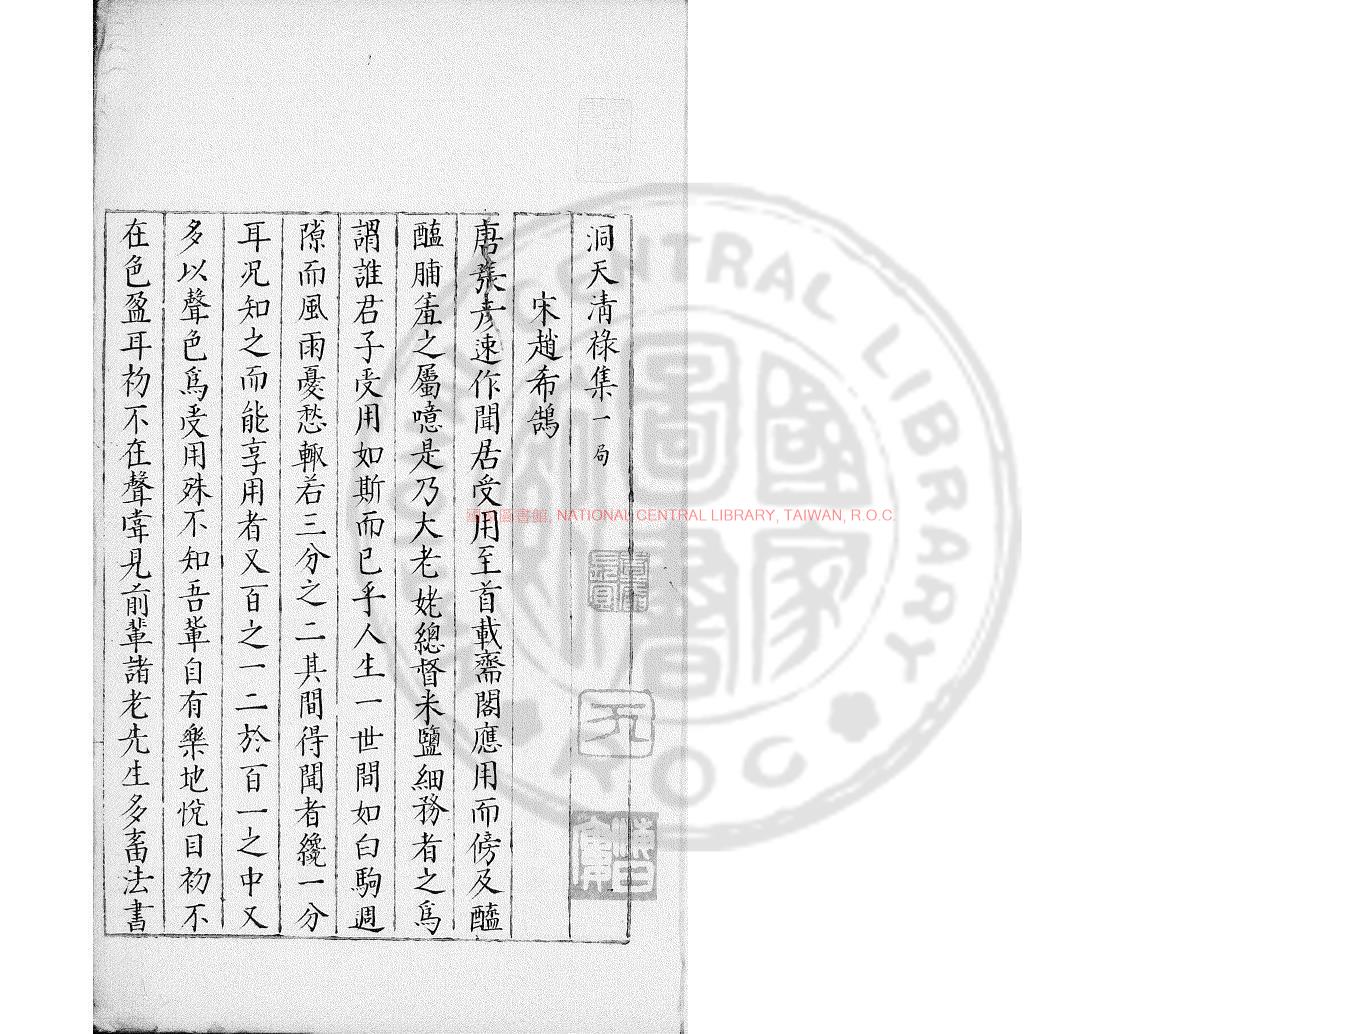 洞天清祿集一局
宋趙希鵠
唐張彥速作聞居受用至首載齋閣應用而傍及醯
醢脯羞之屬噫是乃大老姥總督米鹽細務者之爲
謂誰君子受用如斯而已乎人生一世間如白駒週
隙而風雨憂愁輙若三分之二其間得聞者纔一分
耳况知之而能享用者又百之一二於百一之中又
多以聲色爲受用殊不知吾輩自有樂地悅目初不
在色盈耳初不在聲嘗見前輩諸老先生多畜法書
國家圖書館, NATIONAL CENTRAL LIBRARY, TAIWAN, R.O.C.
NATIONAL CENTRAL LIBRARY
ROC
國家圖書